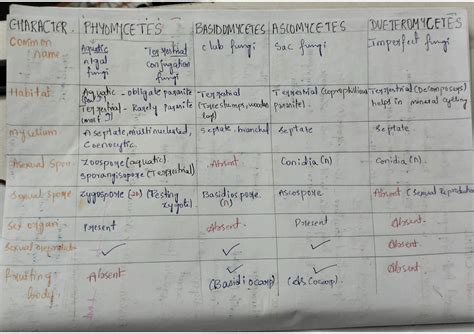 CHARACTER. PHYOMYCETES BASIDOMYCETES ASCOMYCETES DUETEROMYCETES
Common name. Aquatic Terrestrial club fungi Sac fungi Imperfect fungi
algal Conjugation
fungi fungi
Habitat. Aquatic - obligate parasite Terrestrial Terrestrial (coprophilous Terrestrial (Decomposers)
Terrestrial - Rarely Parasite (Tree stumps, wooden parasite). helps in mineral cycling
(most) logs)
Mycelium Aseptate, multinucleated, septate, branched septate septate
Coenocytic.
Asexual Spore. Zoospore (aquatic) Absent. Conidia (n) Conidia (n).
Sporangiospore (Terrestrial)
Sexual Spore Zygospore (2n) (Testing Basidiospore Ascospore Absent (Sexual Reproduction
zygote) (n)
Sex organ. Present Absent. Present Absent.
Sexual reproduction ✓ ✓ ✓ Absent.
fruiting Absent ✓ ✓ Absent.
body. (Basidiocarp) (Ascocarp).